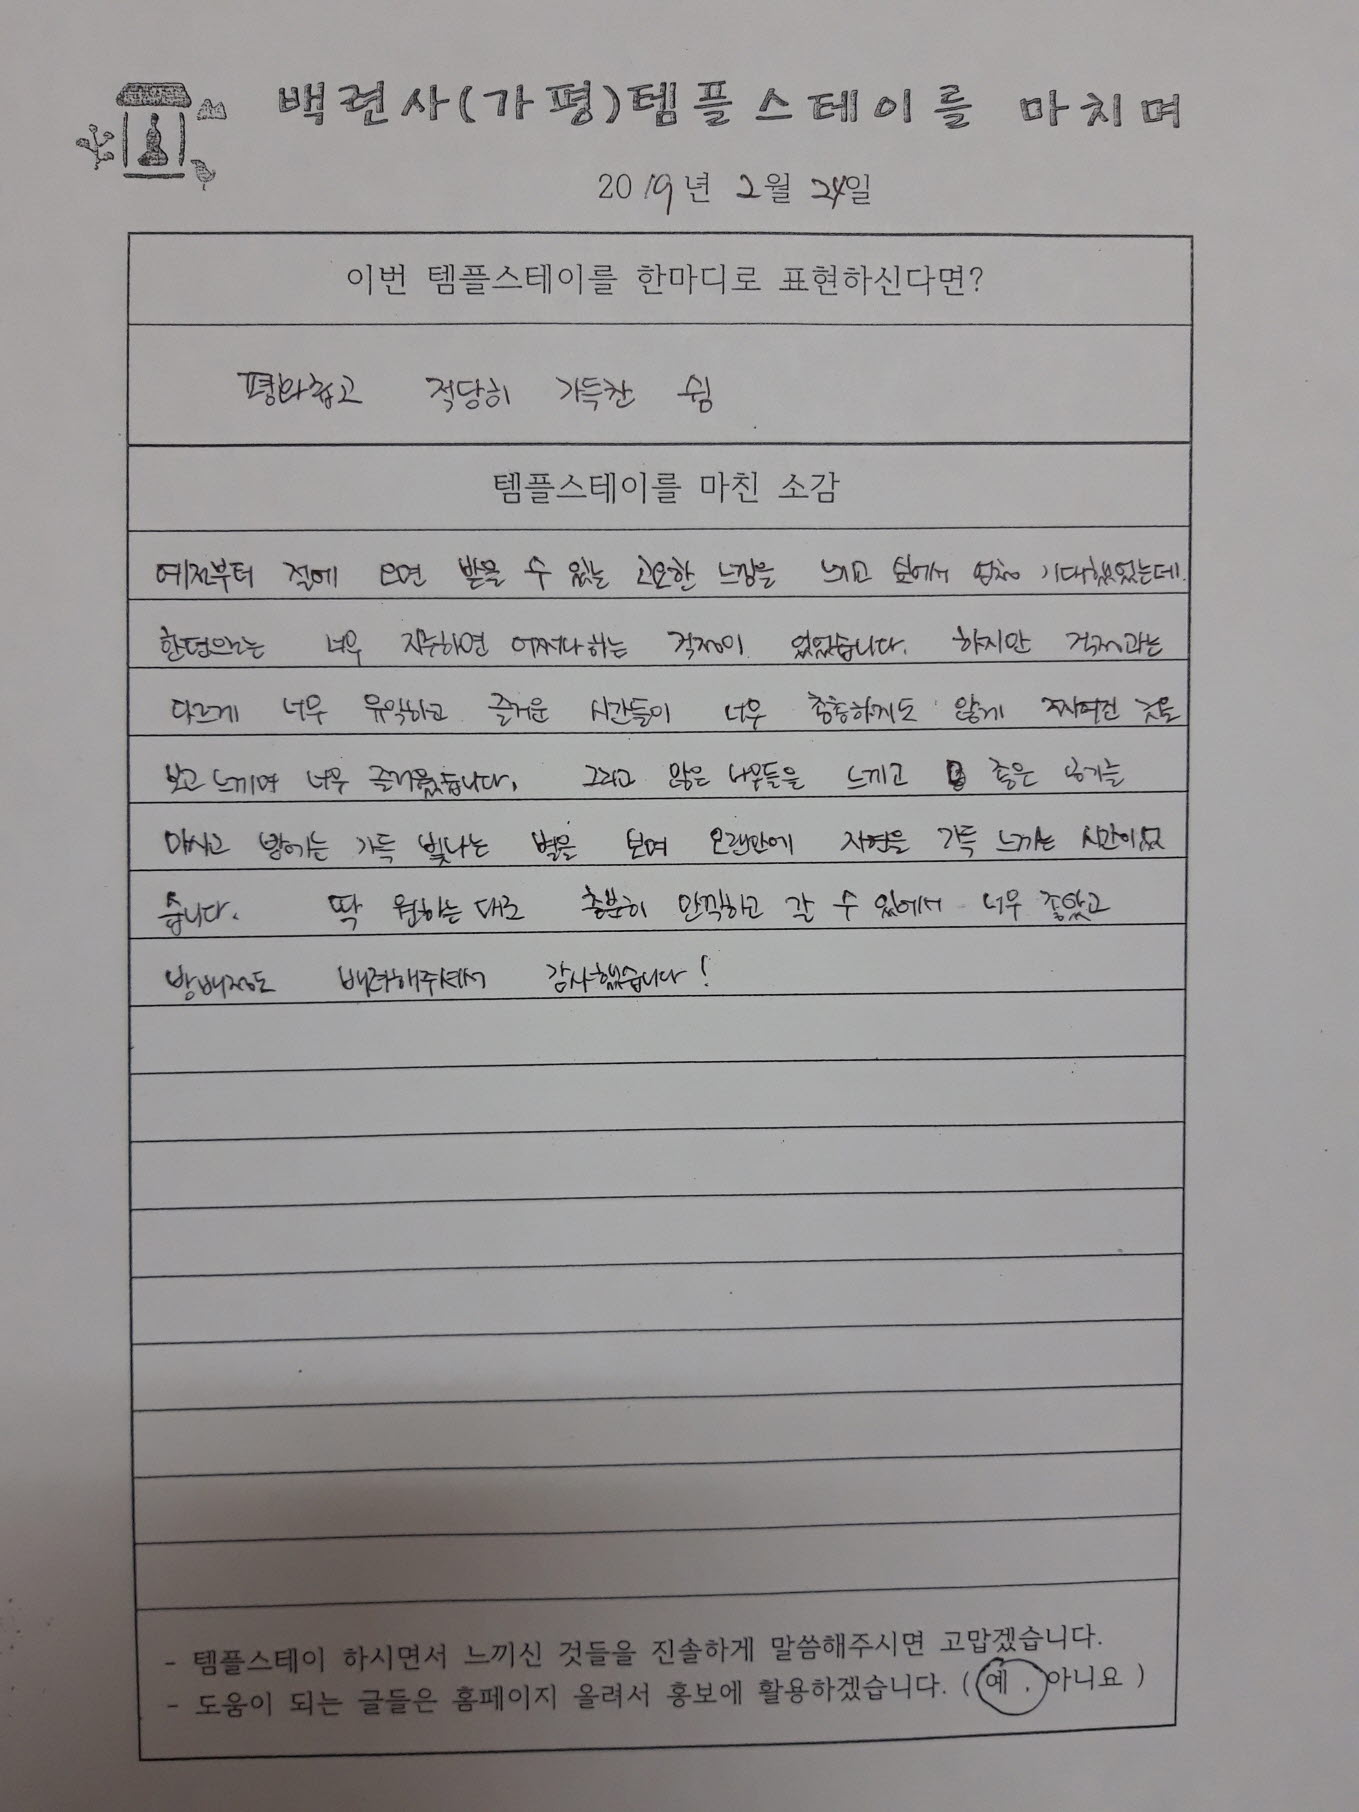 백련사(가평)템플스테이를 마치며
2019년 2월 24일
이번 템플스테이를 한마디로 표현하신다면?
평화롭고 적당히 가득찬 쉼
템플스테이를 마친 소감
예전부터 절에 오면 받을 수 있는 고요한 느낌을 느끼고 싶어서 엄청 기대했었는데
한편으로는 너무 지루하면 어쩌나하는 걱정이 있었습니다. 하지만 걱정과는
다르게 너무 유익하고 즐거운 시간들이 너무 촘촘하지도 않게 짜여진 것을
보고 느끼며 너무 즐거웠습니다. 그리고 많은 나무들을 느끼고 좋은 공기를
마시고 밤에는 가득 빛나는 별을 보며 오랜만에 자연을 가득 느끼는 시간이었
습니다. 딱 원하는 대로 충분히 만끽하고 갈 수 있어서 너무 좋았고
방배정도 배려해주셔서 감사했습니다!
- 템플스테이 하시면서 느끼신 것들을 진솔하게 말씀해주시면 고맙겠습니다.
- 도움이 되는 글들은 홈페이지 올려서 홍보에 활용하겠습니다. ( 예 , 아니요 )